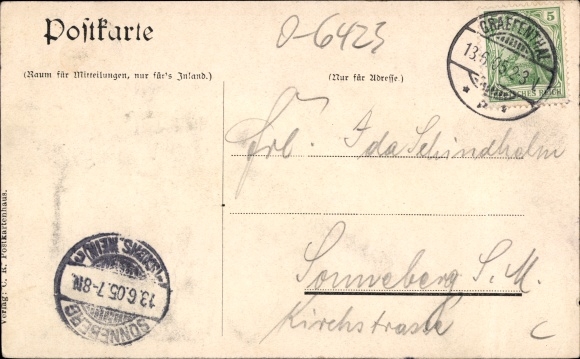 Postkarte
O-6423
(Raum für Mitteilungen, nur für's Inland.)
(Nur für Adresse.)
5
DEUTSCHES REICH
GRAEFENTHAL
13.6.05.2-3
Frl. Ida Schindhelm
Sonneberg S. M.
Kirchstrasse
SONNEBERG
13.6.05.7-8N.
Verlag: C. R. Postkartenhaus.